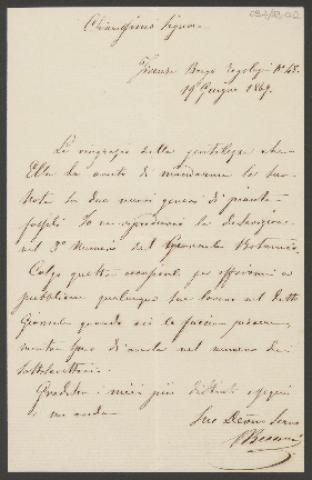 Chiarissimo Signore
Firenze Borgo Tegolaj N° 48.
19 Giugno 1869.
La ringrazio della gentilezza che
Ella ha avuto di mandarmi la sua
Nota su due nuovi generi di piante
fossili. Io ne riprodurrò la descrizione
nel 3° Numero del Giornale Botanico.
Colgo questa occasione per offrirmi a
pubblicare qualunque suo lavoro nel detto
Giornale quando ciò le facesse piacere,
mentre spero di averla nel numero dei
sottoscrittori.
Gradisca i miei più distinti ossequi
e mi creda
Suo Devmo Servo
OBeccari